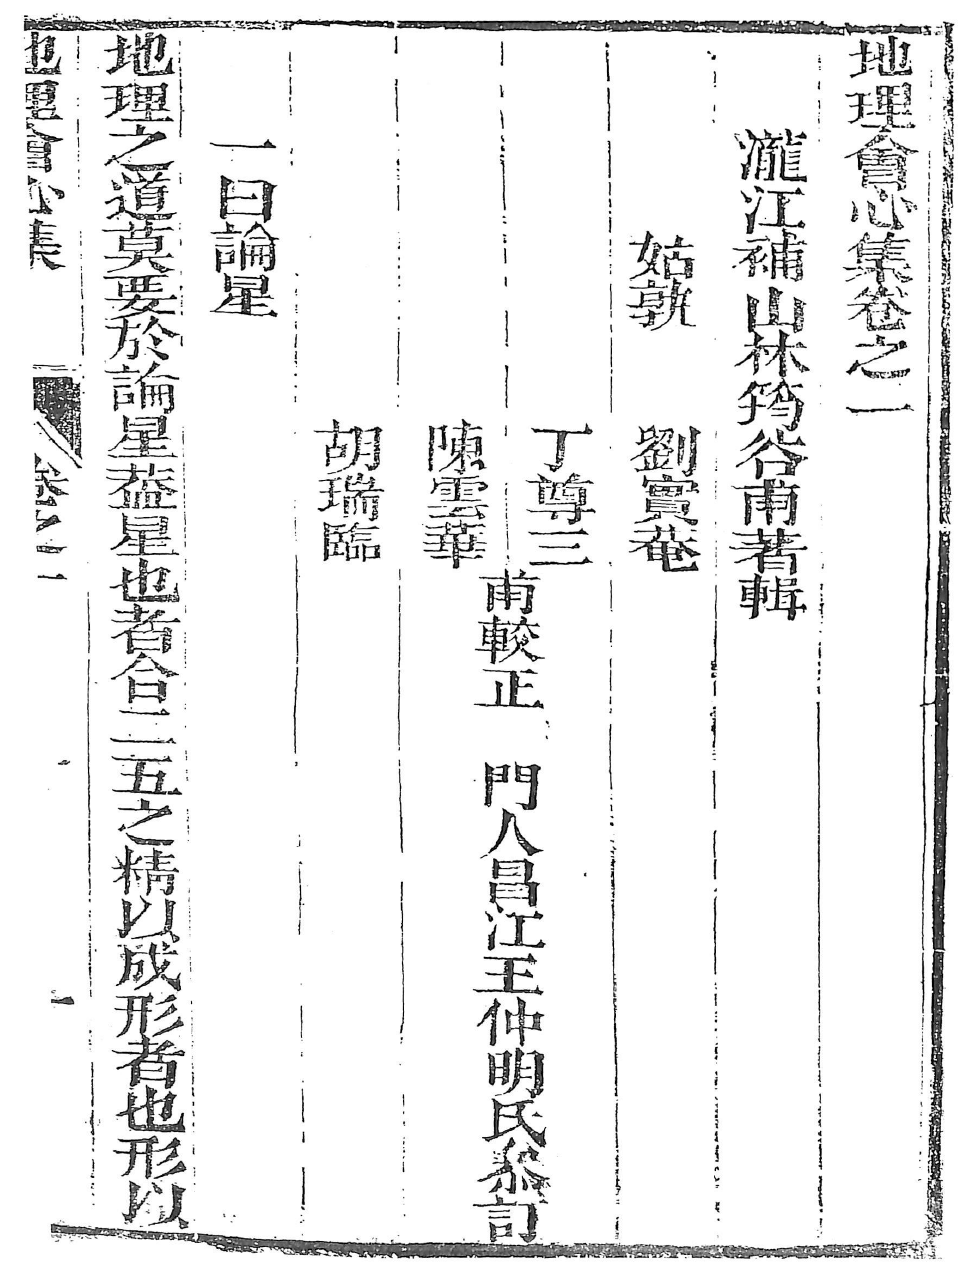 地理會心集卷之一
瀧江補山林筠谷甫著輯
姑孰　劉實菴
丁尊三
陳雲華
胡瑞臨
甫較正　門人昌江王仲明氏叅訂
一曰論星
地理之道莫要於論星葢星也者合二五之精以成形者也形以
地理會心集　卷之一　一